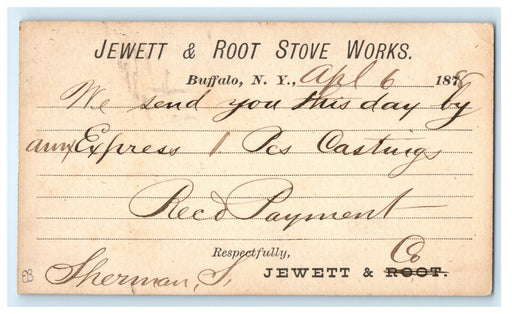 JEWETT & ROOT STOVE WORKS.
Buffalo, N. Y., Apl 6 1878
We send you this day by
am Express 1 Pcs Castings
Recd Payment
Respectfully,
Sherman, S. JEWETT & ROOT. Co